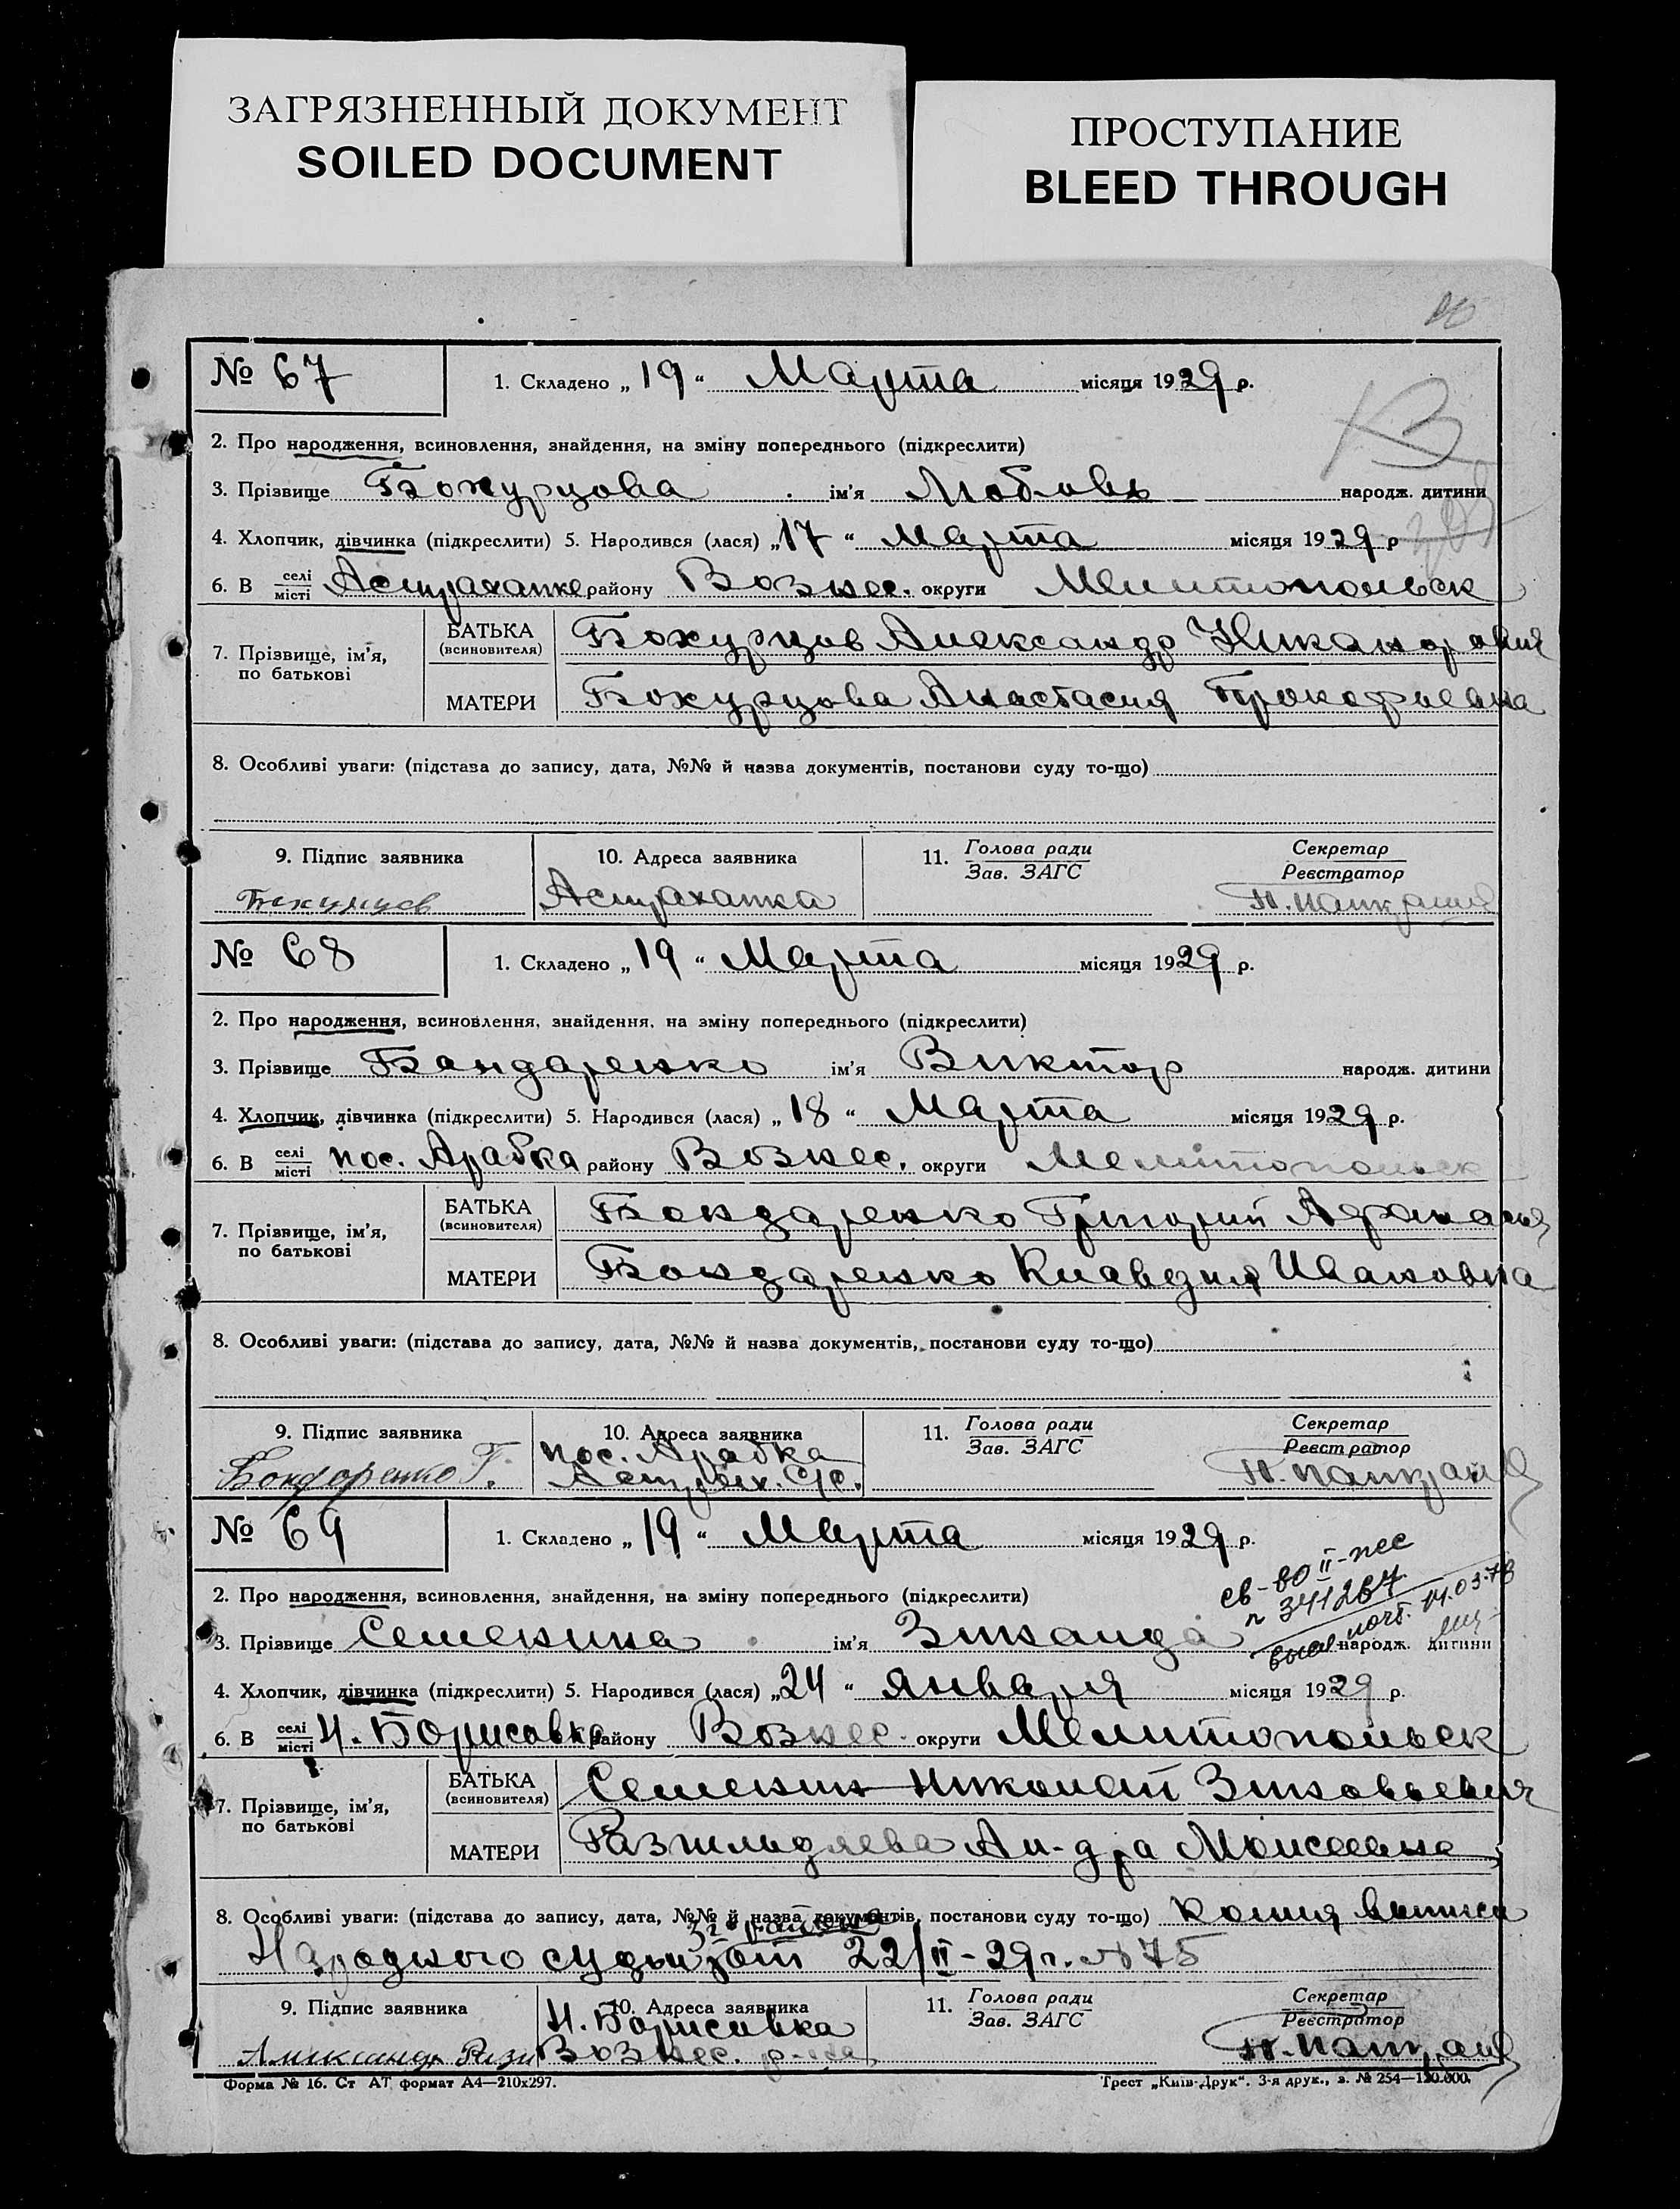 ЗАГРЯЗНЕННЫЙ ДОКУМЕНТ
SOILED DOCUMENT
ПРОСТУПАНИЕ
BLEED THROUGH
№ 67
1. Складено „ 19 “ Марта місяця 1929 р.
2. Про народження, всиновлення, знайдення, на зміну попереднього (підкреслити)
3. Прізвище Бохурцова ім'я Любовь народж. дитини
4. Хлопчик, дівчинка (підкреслити) 5. Народився (лася) „17“ Марта місяця 1929 р
6. В селі місті Астраханке району Вознес. округи Мелитопольск
7. Прізвище, ім'я, по батькові
БАТЬКА (всиновителя) Бохурцов Александр Никанорович
МАТЕРИ Бохурцова Анастасия Прокофиевна
8. Особливі уваги: (підстава до запису, дата, №№ й назва документів, постанови суду то-що)
9. Підпис заявника 10. Адреса заявника 11. Голова ради Секретар
Зав. ЗАГС Реєстратор
Бохурцов Астраханка
№ 68
1. Складено „ 19 “ Марта місяця 1929 р.
2. Про народження, всиновлення, знайдення, на зміну попереднього (підкреслити)
3. Прізвище Бондаренко ім'я Виктор народж. дитини
4. Хлопчик, дівчинка (підкреслити) 5. Народився (лася) „ 18 “ Марта місяця 1929 р.
6. В селі місті пос. Арабка району Вознес. округи Мелитопольск
7. Прізвище, ім'я, по батькові
БАТЬКА (всиновителя) Бондаренко Григорий
МАТЕРИ Бондаренко Клавдия Ивановна
8. Особливі уваги: (підстава до запису, дата, №№ й назва документів, постанови суду то-що)
9. Підпис заявника 10. Адреса заявника 11. Голова ради Секретар
Зав. ЗАГС Реєстратор
Бондоренко Г. пос. Арабка
Астрах. С/с.
№ 69
1. Складено „ 19 “ Марта місяця 1929 р.
св-во II-пес
n 341267
14.03.78
2. Про народження, всиновлення, знайдення, на зміну попереднього (підкреслити)
3. Прізвище Семекина ім'я Зинаида народж. дитини
4. Хлопчик, дівчинка (підкреслити) 5. Народився (лася) „24“ января місяця 1929 р.
6. В селі місті Н. Борисовка району Вознес. округи Мелитопольск
7. Прізвище, ім'я, по батькові
БАТЬКА (всиновителя) Семекин Николай Зиновьевич
МАТЕРИ Ал-дра Моисеевна
8. Особливі уваги: (підстава до запису, дата, №№ й назва документів, постанови суду то-що) копия выписи
Народного судьи 3го района от 22/II-29г. №75
9. Підпис заявника 10. Адреса заявника 11. Голова ради Секретар
Зав. ЗАГС Реєстратор
Н. Борисовка
Вознес. р-на
Форма № 16. Ст АТ формат А4—210х297.
Трест „Київ-Друк“. 3-я друк., з. № 254—120.000.